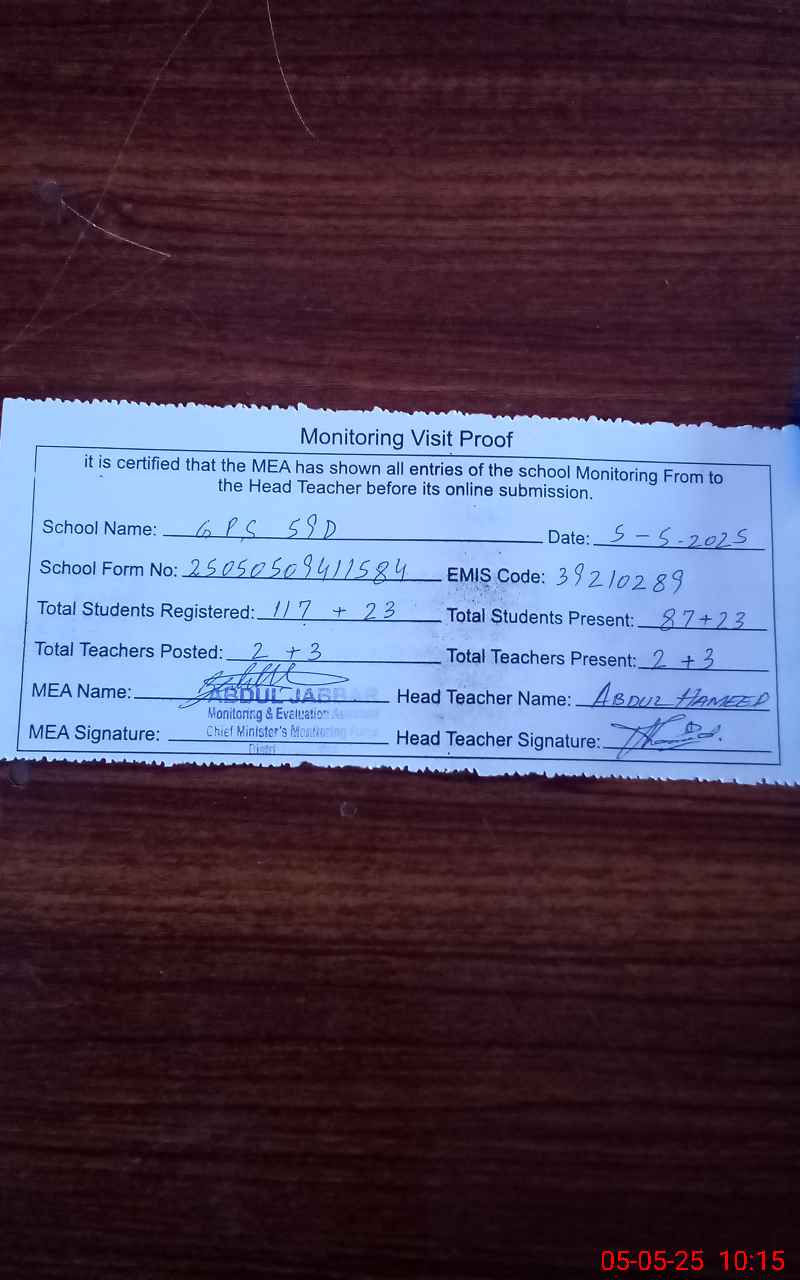 Monitoring Visit Proof
it is certified that the MEA has shown all entries of the school Monitoring From to
the Head Teacher before its online submission.
School Name: G P S 59D Date: 5-5-2025
School Form No: 25050509411584 EMIS Code: 39210289
Total Students Registered: 117 + 23 Total Students Present: 87+23
Total Teachers Posted: 2 +3 Total Teachers Present: 2 +3
MEA Name: ABDUL JABBAR Head Teacher Name: ABDUL HAMEED
Monitoring & Evaluation Assistant
MEA Signature: Chief Minister's Monitoring Force Head Teacher Signature:
05-05-25 10:15